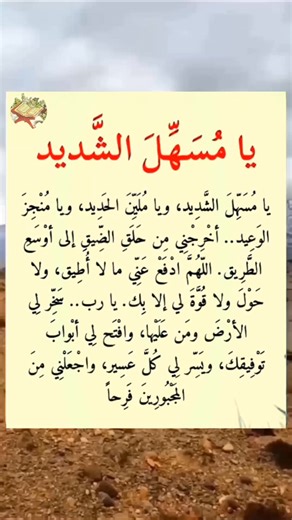 يا مُسَهِّلَ الشَّديد
يا مُسَهِّلَ الشَّديد، ويا مُلَيِّنَ الحَديد، ويا مُنْجِزَ
الوَعيد.. أخْرِجْني مِن حَلَقِ الضِّيقِ إلى أوْسَعِ
الطَّريق. اللّهُمَّ ادْفَعْ عَنِّي ما لا أُطِيق، ولا
حَوْلَ ولا قُوَّةَ لي إلا بِك. يا رب.. سَخِّر لِي
الأرْضَ ومَن عَلَيْها، وافْتَح لِي أبْوابَ
تَوْفِيقِكَ، ويَسّر لِي كُلَّ عَسِير، واجْعَلْنِي مِنَ
المَجْبُورِينَ فَرِحاً